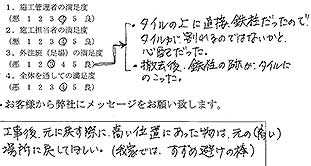 1. 施工管理者の満足度
(悪 1 2 3 4 5 良)
2. 施工担当者の満足度
(悪 1 2 3 4 5 良)
3. 外注班(足場)の満足度
(悪 1 2 3 4 5 良)
4. 全体を通しての満足度
(悪 1 2 3 4 5 良)
・タイルの上に直接鉄柱だったので
タイルが割れるのではないかと
心配だった。
・撤去後、鉄柱の跡がタイルに
のこった。
・お客様から弊社にメッセージをお願い致します。
工事後、元に戻す際に、高い位置にあった物は、元の(高い)
場所に戻してほしい。(我家では、すずめ避けの棒)